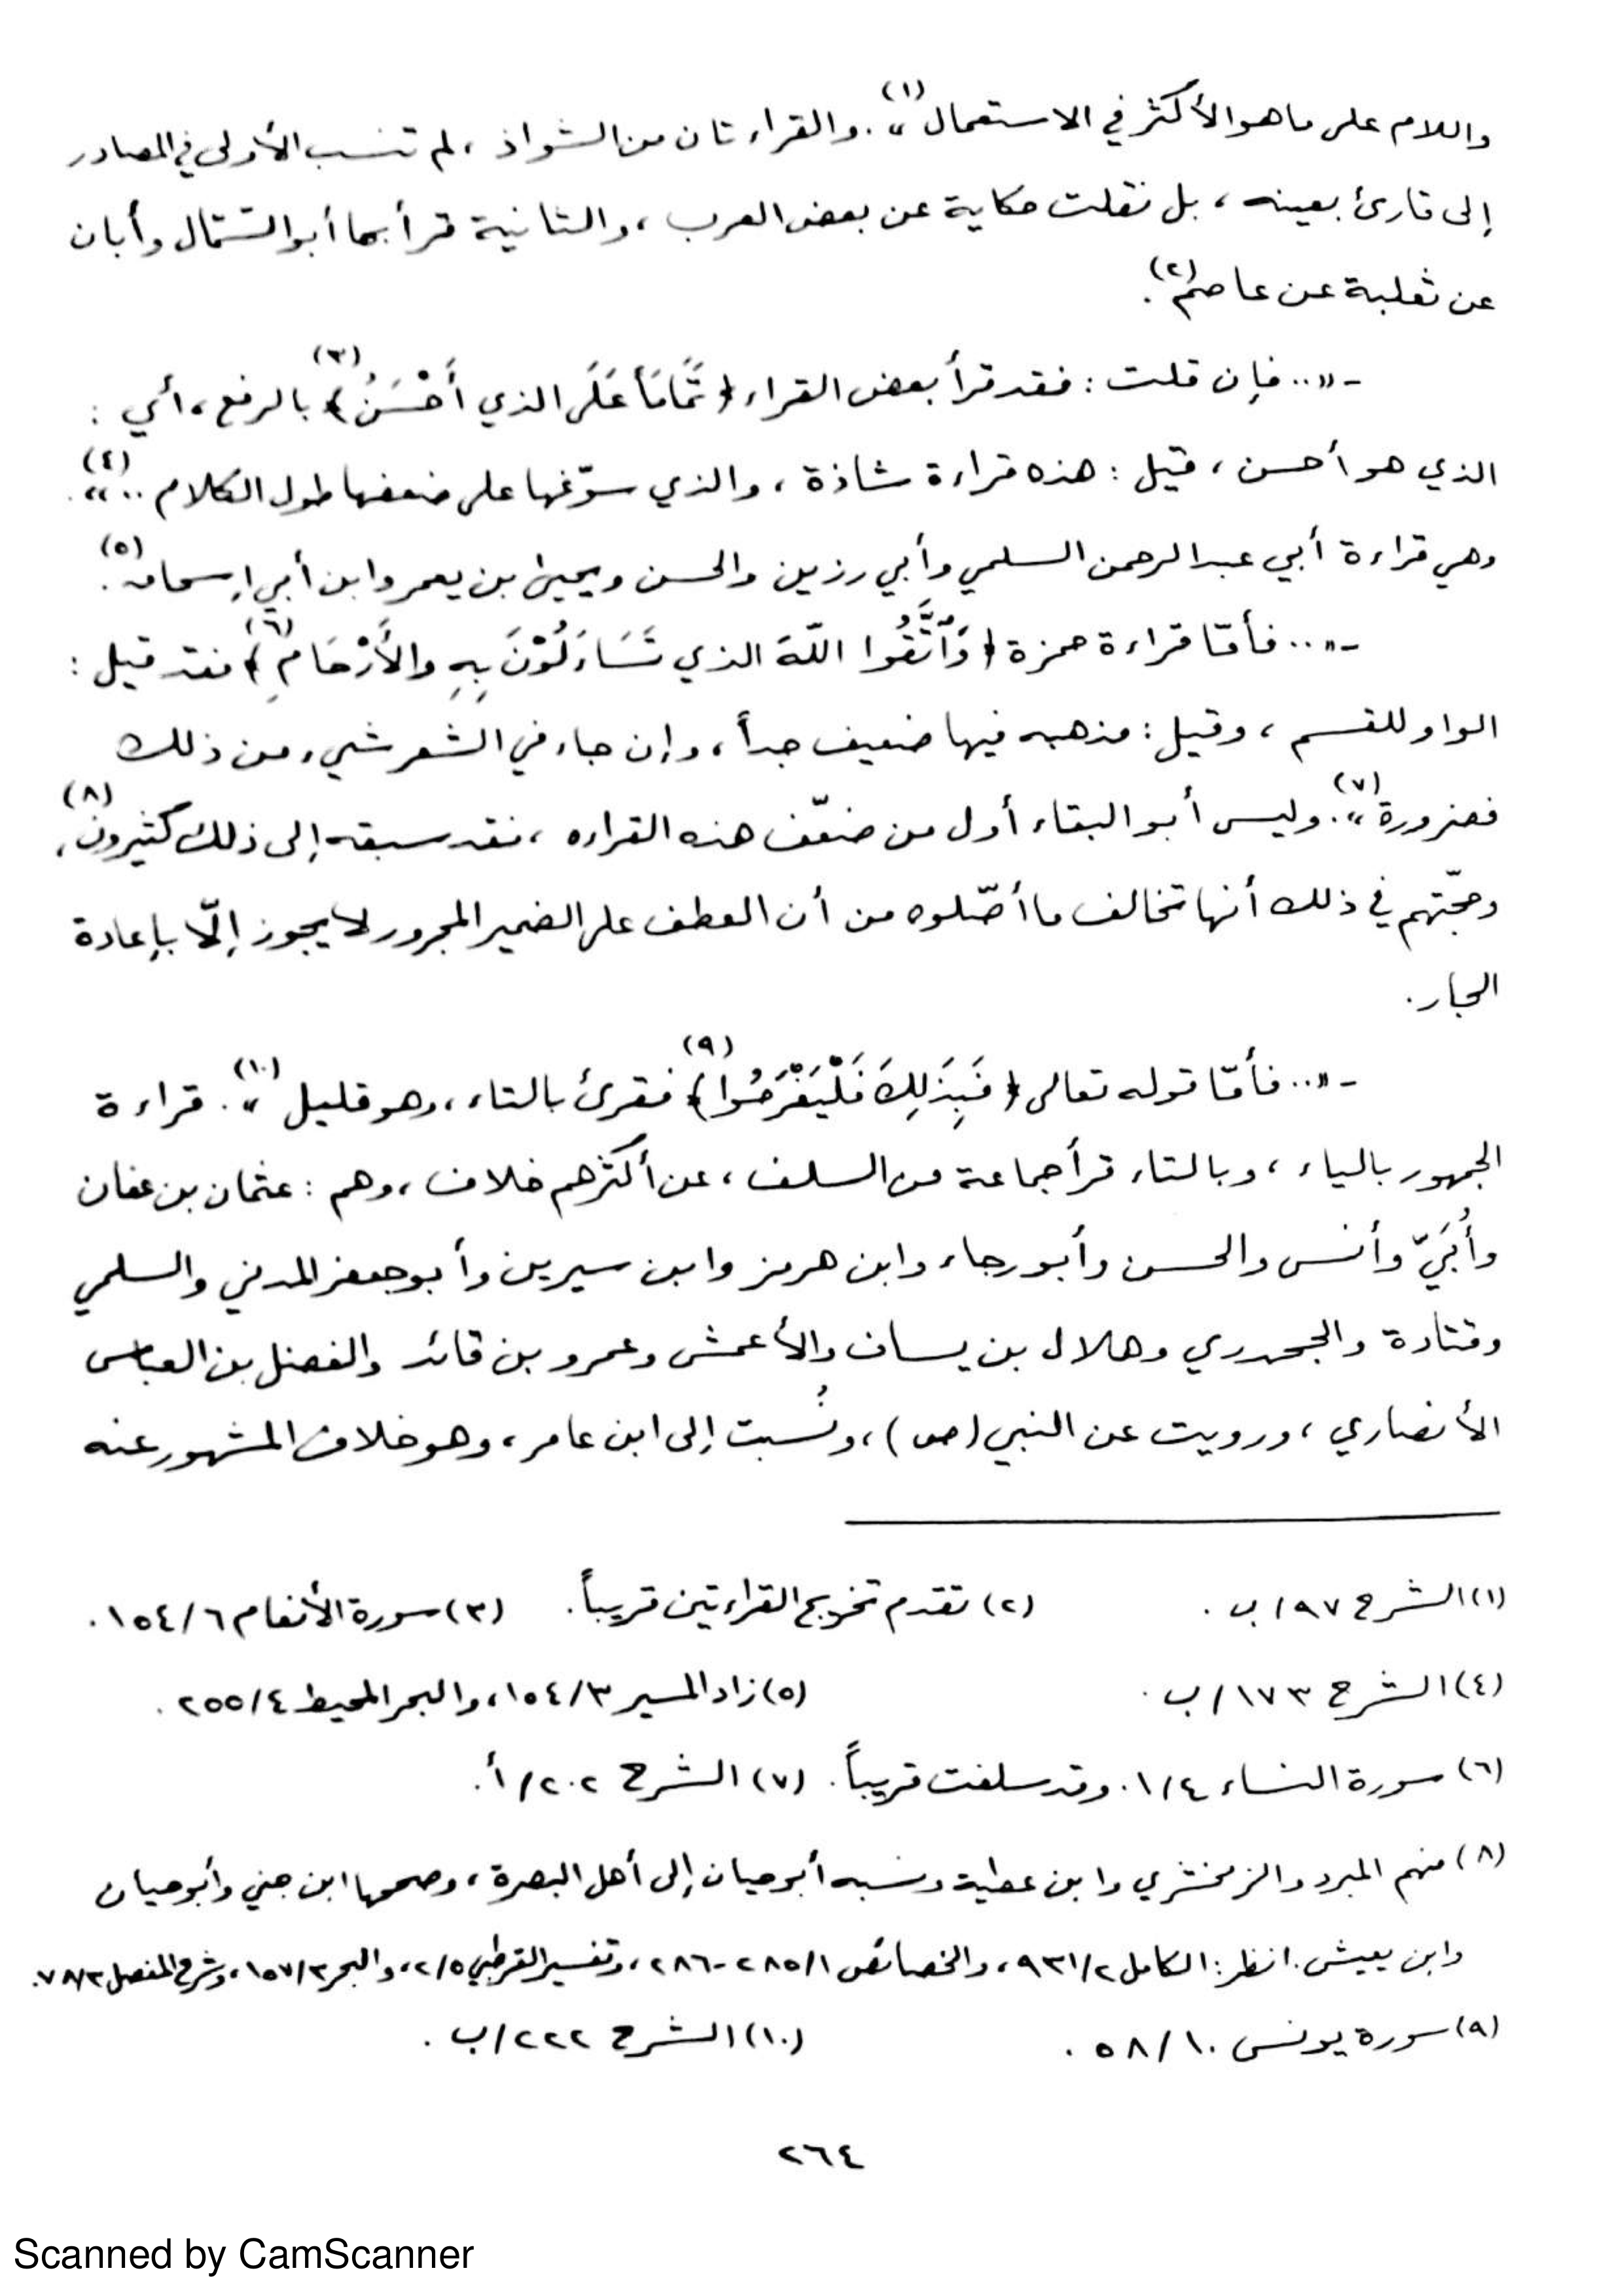 واللام على ما هو الأكثر في الاستعمال»(١). والقراءتان من الشواذ، لم تنسب الأولى في المصادر
إلى قارئ بعينه، بل نقلت حكاية عن بعض العرب، والثانية قرأ بها أبو السّمّال وأبان
عن ثعلبة عن عاصم(٢).
- «.. فإن قلت: فقد قرأ بعض القراء ﴿تَمَامَاً عَلَى الذي أَحْسَنُ﴾(٣) بالرفع، أي:
الذي هو أحسن، قيل: هذه قراءة شاذة، والذي سوّغها على ضعفها طول الكلام ..»(٤).
وهي قراءة أبي عبد الرحمن السلمي وأبي رزين والحسن ويحيى بن يعمر وابن أبي إسحاق(٥).
- «.. فأمّا قراءة حمزة ﴿وَٱتَّقُوا اللّهَ الذي تَسَاءَلُوْنَ بِهِ والأَرْحَامِ﴾(٦) فقد قيل:
الواو للقسم، وقيل: مذهبه فيها ضعيف جداً، وإن جاء في الشعر شيء من ذلك
فضرورة»(٧). وليس أبو البقاء أول من ضعّف هذه القراءه، فقد سبقه إلى ذلك كثيرون(٨)،
وحجّتهم في ذلك أنها تخالف ما أصّلوه من أن العطف على الضمير المجرور لا يجوز إلّا بإعادة
الجار.
- «.. فأمّا قوله تعالى ﴿فَبِذَلِكَ فَلْيَفْرَحُوا﴾(٩) فقرئ بالتاء، وهو قليل»(١٠). قراءة
الجمهور بالياء، وبالتاء قرأ جماعة من السلف، عن أكثرهم خلاف، وهم: عثمان بن عفان
وأُبَيّ وأنس والحسن وأبو رجاء وابن هرمز وابن سيرين وأبو جعفر المدني والسلمي
وقتادة والجحدري وهلال بن يساف والأعمش وعمرو بن قائد والفضل بن العباس
الأنصاري، ورويت عن النبي (ص)، ونُسبت إلى ابن عامر، وهو خلاف المشهور عنه
(١) الشرح ٩٧/ب. (٢) تقدم تخريج القراءتين قريباً. (٣) سورة الأنعام ٦/١٥٤.
(٤) الشرح ١٧٣/ب. (٥) زاد المسير ٣/١٥٤، والبحر المحيط ٤/٢٥٥.
(٦) سورة النساء ٤/١. وقد سلفت قريباً. (٧) الشرح ٢٠٢/أ.
(٨) منهم المبرد والزمخشري وابن عطية ونسبه أبو حيان إلى أهل البصرة، وصححها ابن جني وأبو حيان
وابن يعيش. انظر: الكامل ٢/٩٣١، والخصائص ١/٢٨٥-٢٨٦، وتفسير القرطبي ٥/٢، والبحر ٣/١٥٧، وشرح المفصل ٣/٧٨.
(٩) سورة يونس ١٠/٥٨. (١٠) الشرح ٢٢٢/ب.
٢٦٤
Scanned by CamScanner